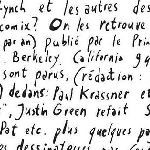 ynch et les autres des
comix? On les retrouve
par an) publié par le Prin
Berkeley. California 94
sont parus, (rédaction :
) dedans: Paul Krassner et
", Justin Green refait S
Pat etc. plus quelques pa
dessinateurs